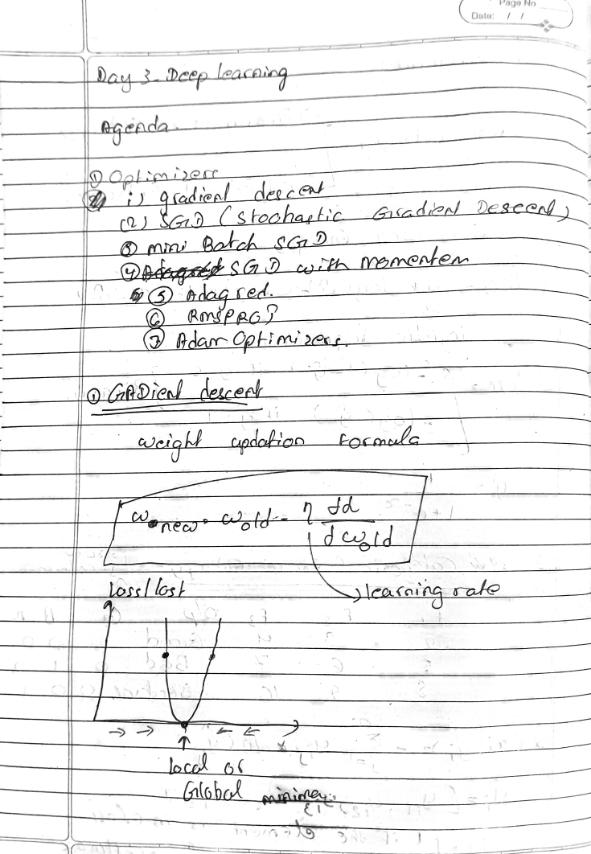 Page No
Date: / /
Day 3 - Deep learning
Agenda.
① Optimizers
i) gradient descent
(2) SGD (Stochastic Gradient Descent)
③ mini Batch SGD
④ Adagred SGD with momentem
⑤ Adagred.
⑥ RMSPRG
⑦ Adam Optimizers.
① GRADient descent
weight updation Formula
w new = w old - η dd / d w old
learning rate
Loss/Cost
→ → ← ←
local or
Global minima